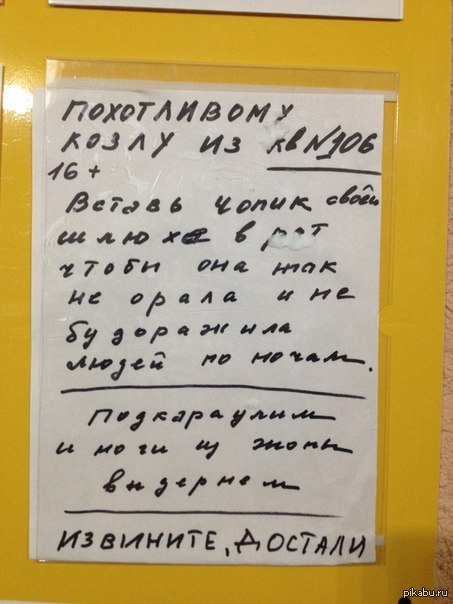 ПОХОТЛИВОМУ
КОЗЛУ ИЗ кв№106
16+
Вставь чопик своей
шлюхе в рот
чтобы она так
не орала и не
будоражила
людей по ночам.
Подкараулим
и ноги из жопы
выдернем
ИЗВИНИТЕ, ДОСТАЛИ
pikabu.ru